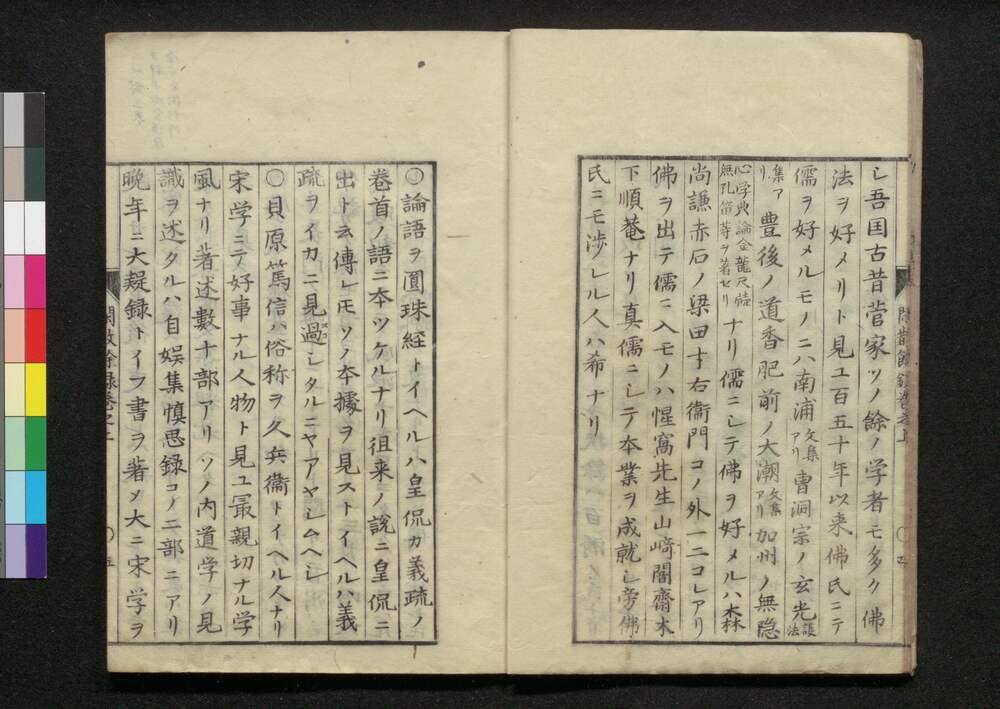 シ吾国古昔菅家ツノ餘ノ学者モ多ク佛
法ヲ好メリト見ユ百五十年以来佛氏ニテ
儒ヲ好メルモノニハ南浦文集アリ曹洞宗ノ玄光護法
集アリ豊後ノ道香肥前ノ大潮文集アリ加州ノ無隠
心学典論金龍尺牘無孔笛等ヲ著セリナリ儒ニシテ佛ヲ好メルハ森
尚謙赤石ノ梁田才右衞門コノ外一二コレアリ
佛ヲ出テ儒ニ入モノハ惺窩先生山﨑闇齋木
下順菴ナリ真儒ニシテ本業ヲ成就シ旁佛
氏ニモ渉レル人ハ希ナリ
○論語ヲ圓珠経トイヘルハ皇侃カ義疏ノ
巻首ノ語ニ本ツケルナリ徂来ノ説ニ皇侃ニ
出ト云傳レトモソノ本據ヲ見ストイヘルハ義
疏ヲイカニ見過シタルニヤアヤシムヘシ
○貝原篤信ハ俗称ヲ久兵衞トイヘル人ナリ
宋学ニテ好事ナル人物ト見ユ最親切ナル学
風ナリ著述數十部アリソノ内道学ノ見
識ヲ述タルハ自娯集慎思録コノ二部ニアリ
晩年ニ大疑録トイフ書ヲ著メ大ニ宋学ヲ
閑散餘録巻之上